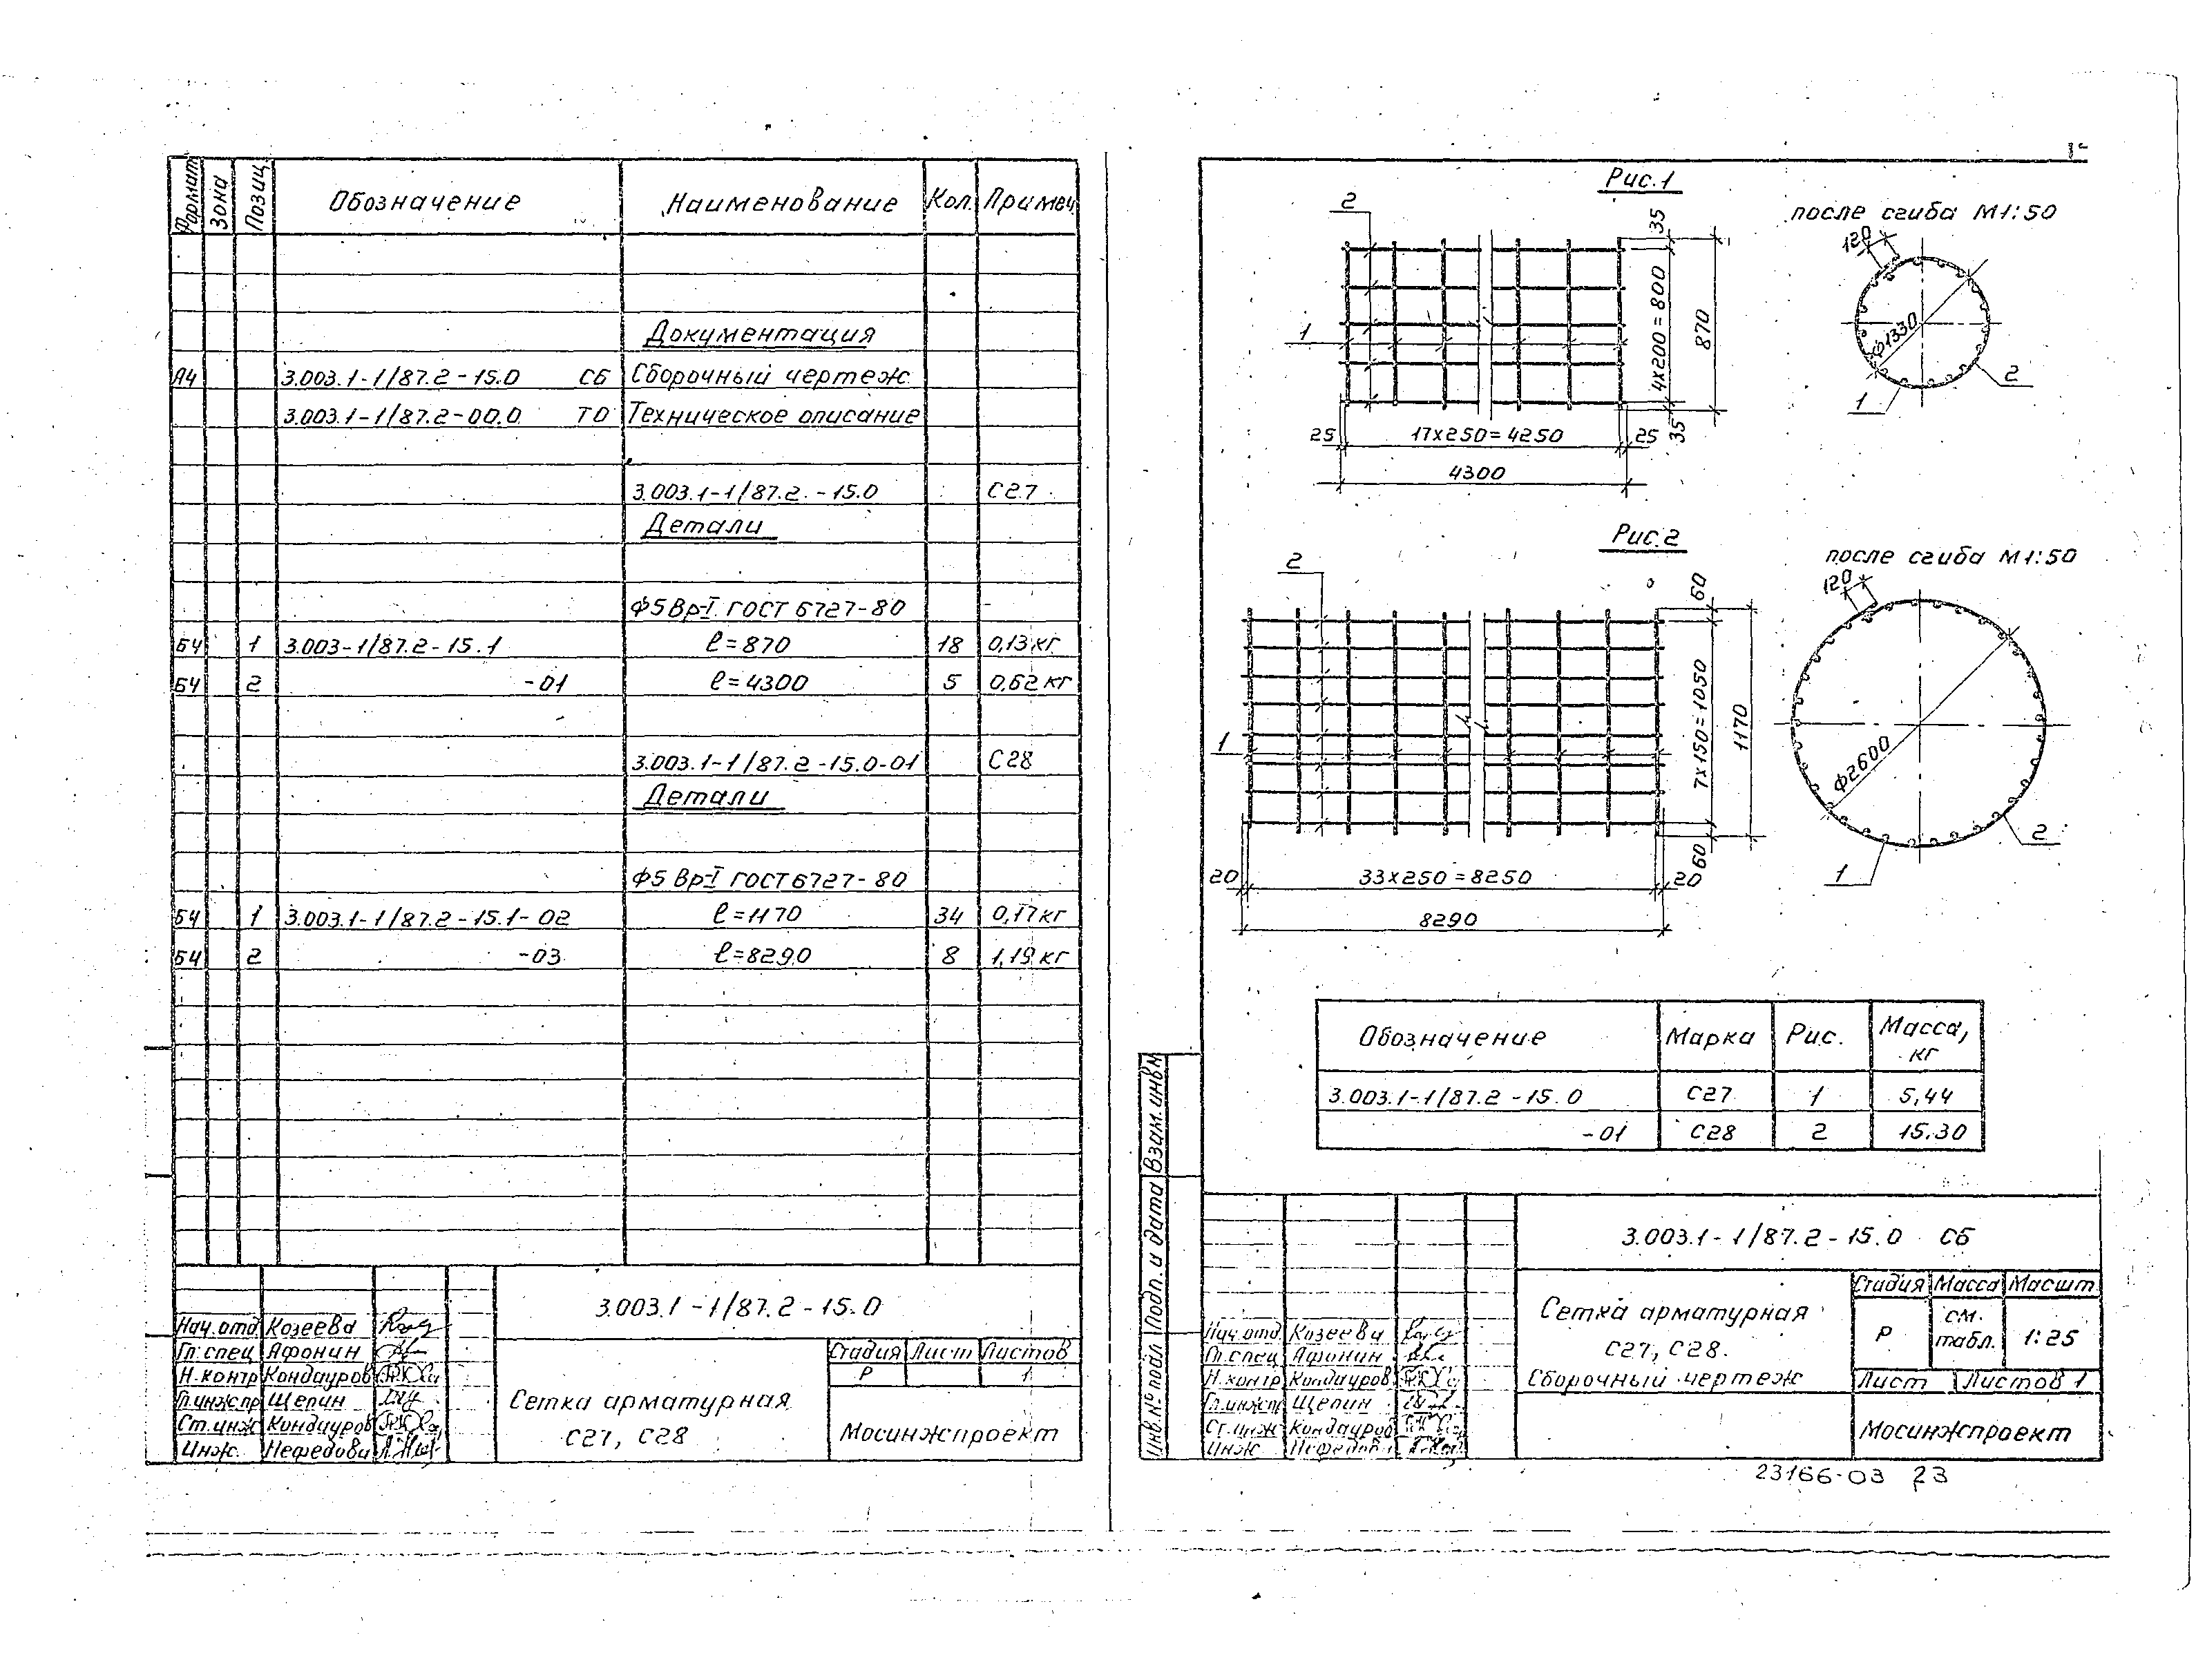 Формат Зона Позиц. Обозначение Наименование Кол. Примеч.
Документация
А4 3.003.1-1/87.2-15.0 СБ Сборочный чертеж
3.003.1-1/87.2-00.0 ТО Техническое описание
3.003.1-1/87.2-15.0 С27
Детали
Ф5 Вр-I ГОСТ 6727-80
Б4 1 3.003-1/87.2-15.1 ℓ=870 18 0,13кг
Б4 2 -01 ℓ=4300 5 0,62кг
3.003.1-1/87.2-15.0-01 С28
Детали
Ф5 Вр-I ГОСТ 6727-80
Б4 1 3.003.1-1/87.2-15.1-02 ℓ=1170 34 0,17кг
Б4 2 -03 ℓ=8290 8 1,19кг
3.003.1-1/87.2-15.0
Нач.отд. Козеева
Гл.спец Афонин
Н.контр Кондауров
Гл.инж.пр Щепин
Ст.инж Кондауров
Инж. Нефедова
Сетка арматурная
С27, С28
Стадия Лист Листов
Р 1
Мосинжпроект
Рис.1
2
1
35
4х200=800
870
35
25 17х250=4250 25
4300
после сгиба М1:50
120
Ф1330
2
1
Рис.2
2
1
60
7х150=1050
1170
60
20 33х250=8250 20
8290
после сгиба М1:50
120
Ф2600
2
1
Обозначение Марка Рис. Масса, кг
3.003.1-1/87.2-15.0 С27 1 5,44
-01 С28 2 15.30
Взам.инв.№
Подп. и дата
Инв.№ подл
3.003.1-1/87.2-15.0 СБ
Нач.отд. Козеева
Гл.спец Афонин
Н.контр Кондауров
Гл.инж.пр Щепин
Ст.инж Кондауров
Инж Нефедова
Сетка арматурная
С27, С28.
Сборочный чертеж
Стадия Масса Масшт
Р см. табл. 1:25
Лист Листов 1
Мосинжпроект
23166-03 23